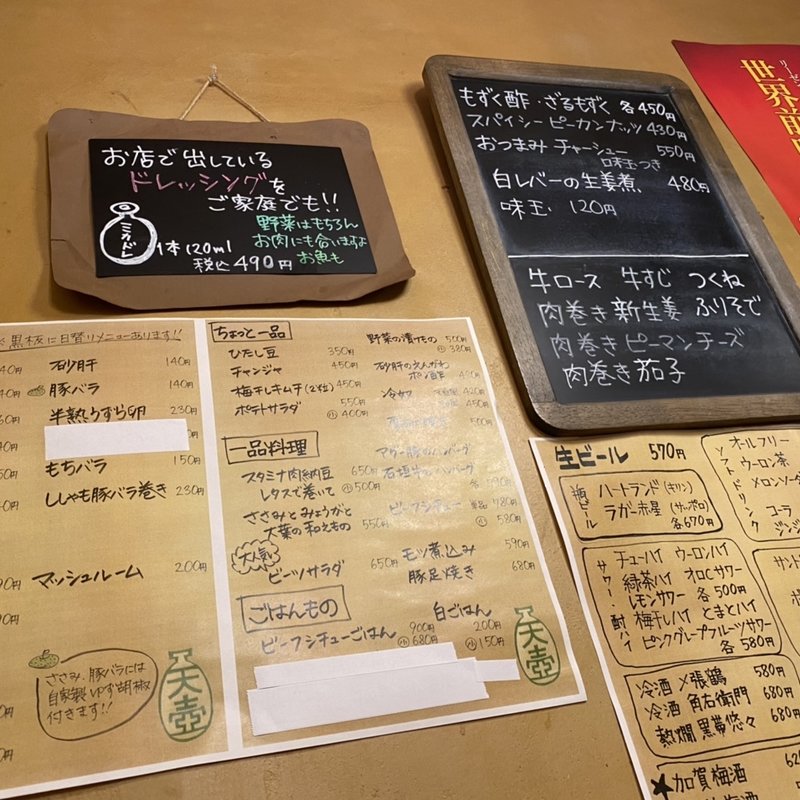 お店で出している
ドレッシングを
ご家庭でも!!
ミカドレ
1本120ml
税込490円
野菜はもちろん
お肉にも合いますよ
お魚も
もずく酢・ざるもずく 各450円
スパイシーピーカンナッツ 430円
おつまみチャーシュー 550円
味玉つき
白レバーの生姜煮、 480円
味玉 120円
牛ロース 牛すじ つくね
肉巻き新生姜 ふりそで
肉巻きピーマンチーズ
肉巻き茄子
世界
黒板に日替りメニューあります!!
砂肝 140円
豚バラ 140円
半熟うずら卵 230円
もちバラ 150円
ししゃも豚バラ巻き 230円
マッシュルーム 200円
ささみ、豚バラには
自家製ゆず胡椒
付きます!!
天壺
ちょっと一品
ひたし豆 350円
チャンジャ 450円
梅干しキムチ(2粒) 450円
ポテトサラダ 550円
小 400円
野菜の漬けもの 500円
小 380円
砂肝のえんがわ
ポン酢 450円
冷奴
一品料理
スタミナ肉納豆 650円
レタスで巻いて 小500円
ささみとみょうがと
大葉の和えもの 550円
大人気
ビーツサラダ 650円
石垣牛のハンバーグ
各590円
ビーフシチュー 単品 780円
小 580円
モツ煮込み 590円
豚足焼き 680円
ごはんもの
ビーフシチューごはん 900円
小 680円
白ごはん 200円
小 150円
天壺
生ビール 570円
瓶ビール
ハートランド(キリン)
ラガー赤星(サッポロ)
各670円
サワー・酎ハイ
チューハイ ウーロンハイ
緑茶ハイ オロCサワー
レモンサワー 各500円
梅干しハイ とまとハイ
ピンクグレープフルーツサワー
各580円
冷酒 〆張鶴 580円
冷酒 角右衛門 680円
熱燗 黒帯悠々 680円
★加賀梅酒
ソフトドリンク
オールフリー
ウーロン茶
メロンソーダ
コーラ